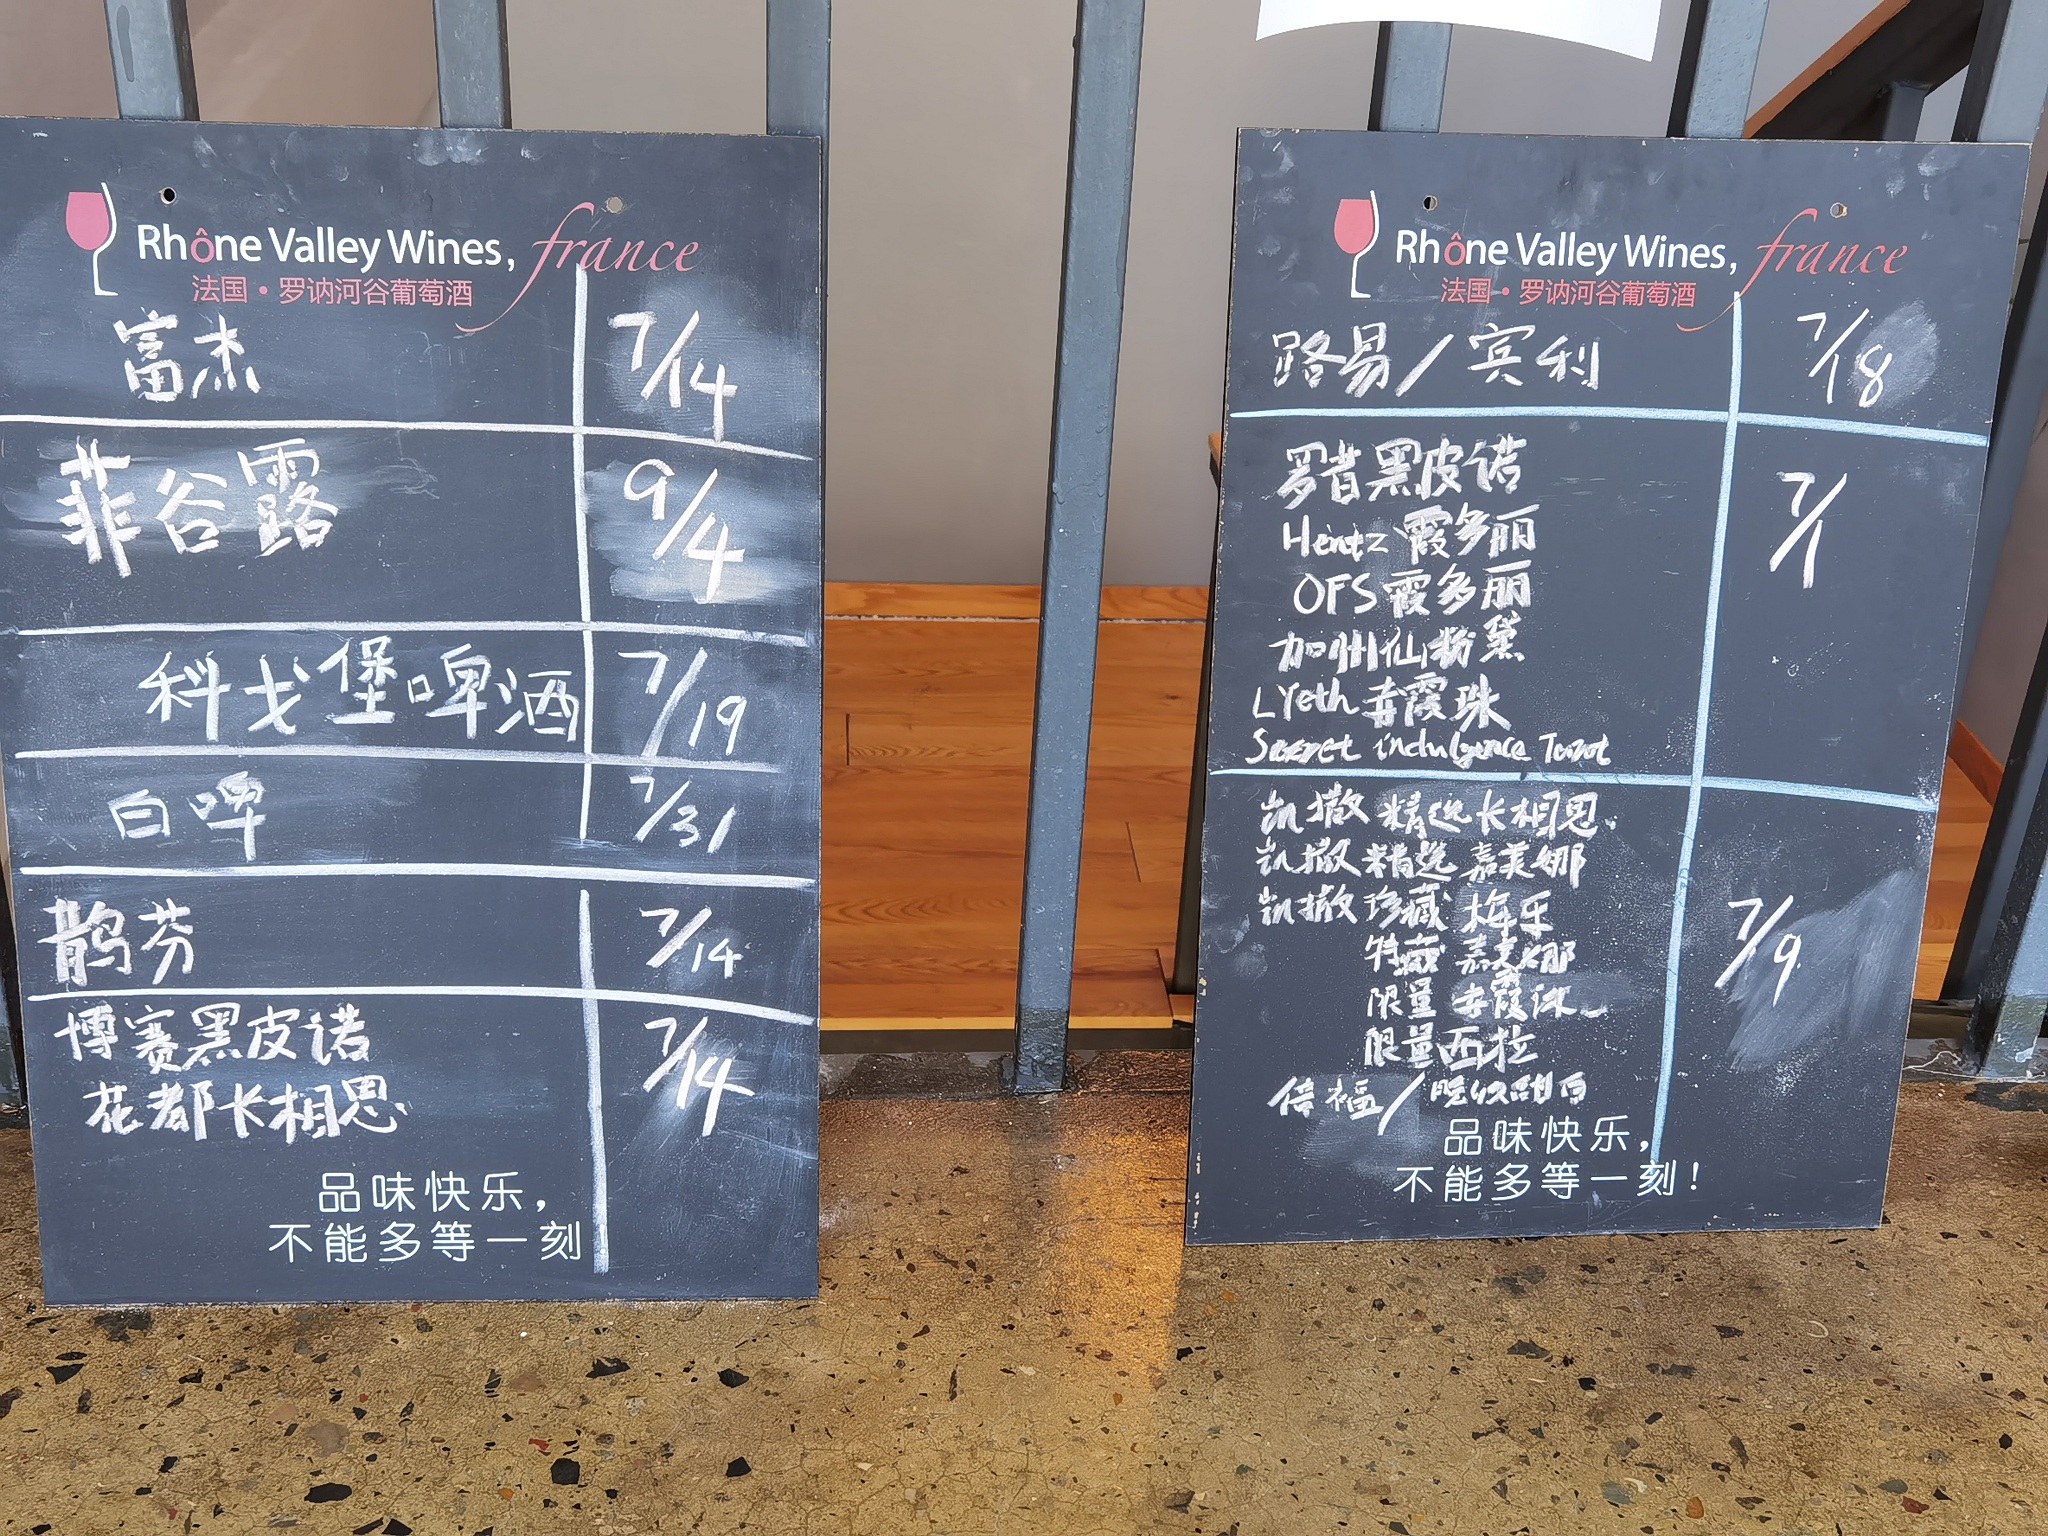 Rhône Valley Wines, france
法国·罗讷河谷葡萄酒
富杰 7/14
菲谷露 9/4
科戈堡啤酒 7/19
白啤 7/31
鹊芬 7/14
博赛黑皮诺 7/14
花都长相思
品味快乐，
不能多等一刻
Rhône Valley Wines, france
法国·罗讷河谷葡萄酒
路易/宾利 7/18
罗者黑皮诺 7/1
Hentz 霞多丽
OFS 霞多丽
加州仙粉黛
LYeth 赤霞珠
Secret indulgence
凯撒 精选 长相思
凯撒 精选 嘉美娜
凯撒 珍藏 梅乐
特藏 嘉美娜 7/9
限量 赤霞珠
限量西拉
倍福/晚收甜白
品味快乐，
不能多等一刻！